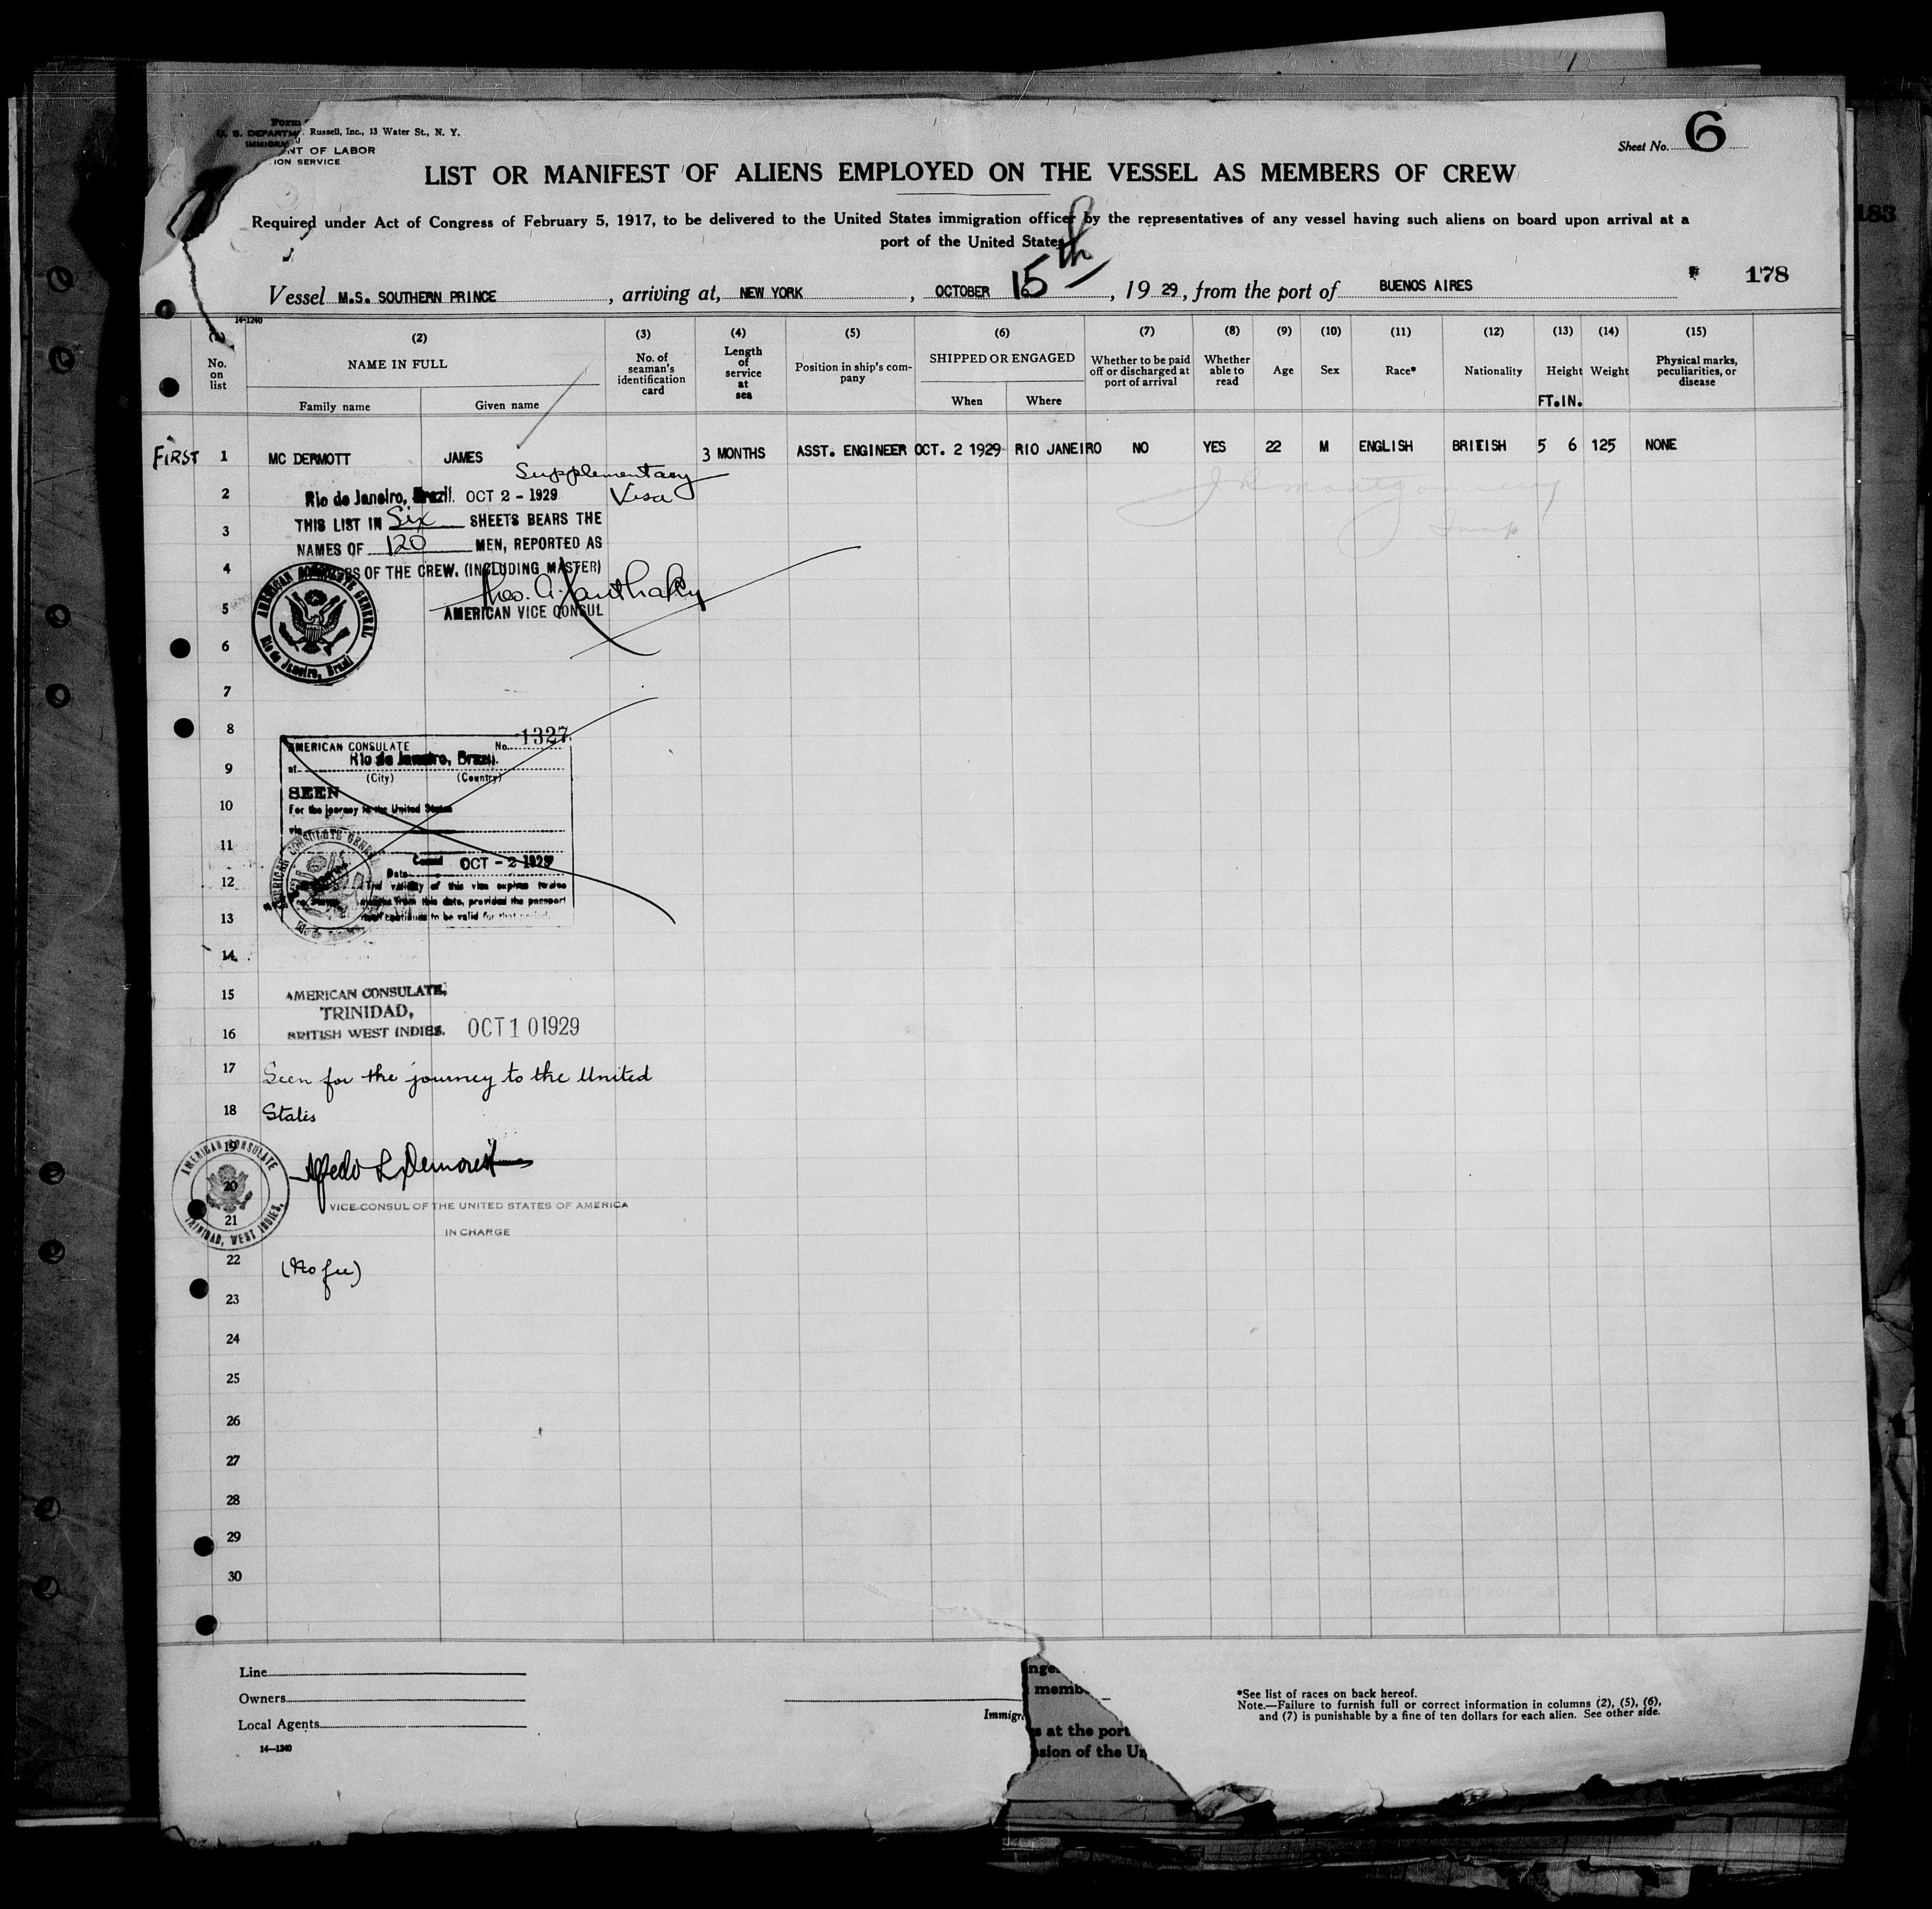 Form
U. S. DEPARTM Russell, Inc., 13 Water St., N. Y.
IMMIGRA
NT OF LABOR
ION SERVICE
Sheet No. 6
LIST OR MANIFEST OF ALIENS EMPLOYED ON THE VESSEL AS MEMBERS OF CREW
Required under Act of Congress of February 5, 1917, to be delivered to the United States immigration officer by the representatives of any vessel having such aliens on board upon arrival at a
port of the United States
183
Vessel M.S. SOUTHERN PRINCE, arriving at, NEW YORK, OCTOBER 15th, 19 29, from the port of BUENOS AIRES
178
14-1240
(1) (2) (3) (4) (5) (6) (7) (8) (9) (10) (11) (12) (13) (14) (15)
No. on list
NAME IN FULL
Family name
Given name
No. of seaman's identification card
Length of service at sea
Position in ship's company
SHIPPED OR ENGAGED
When
Where
Whether to be paid off or discharged at port of arrival
Whether able to read
Age
Sex
Race*
Nationality
Height
FT. IN.
Weight
Physical marks, peculiarities, or disease
FIRST 1 MC DERMOTT JAMES 3 MONTHS ASST. ENGINEER OCT. 2 1929 RIO JANEIRO NO YES 22 M ENGLISH BRITISH 5 6 125 NONE
Supplementary
Visa
2
Rio de Janeiro, Brazil. OCT 2 - 1929
THIS LIST IN Six SHEETS BEARS THE
3
NAMES OF 120 MEN, REPORTED AS
4
RS OF THE CREW. (INCLUDING MASTER)
Theo. A. Xanthaky
5
AMERICAN VICE CONSUL
AMERICAN CONSULATE GENERAL
Rio de Janeiro, Brazil
6
7
8
AMERICAN CONSULATE No. 1327
9
at Rio de Janeiro, Brazil.
(City) (Country)
10
SEEN
For the journey to the United States
via
11
AMERICAN CONSULATE GENERAL
Rio de Janeiro
Consul OCT - 2 1929
Date
12
The validity of this visa expires twelve
months from this date, provided the passport
13
continues to be valid for that period.
14
15
AMERICAN CONSULATE,
TRINIDAD,
16
BRITISH WEST INDIES. OCT 10 1929
17
Seen for the journey to the United
18
States
19
20
21
AMERICAN CONSULATE
TRINIDAD, WEST INDIES.
Alfredo L. Demorest
VICE-CONSUL OF THE UNITED STATES OF AMERICA
IN CHARGE
22
(No fee)
23
24
25
26
27
28
29
30
Line
Owners
Local Agents
14—1240
Immigr
nge
memb
s at the port
ssion of the Un
*See list of races on back hereof.
Note.—Failure to furnish full or correct information in columns (2), (5), (6),
and (7) is punishable by a fine of ten dollars for each alien. See other side.